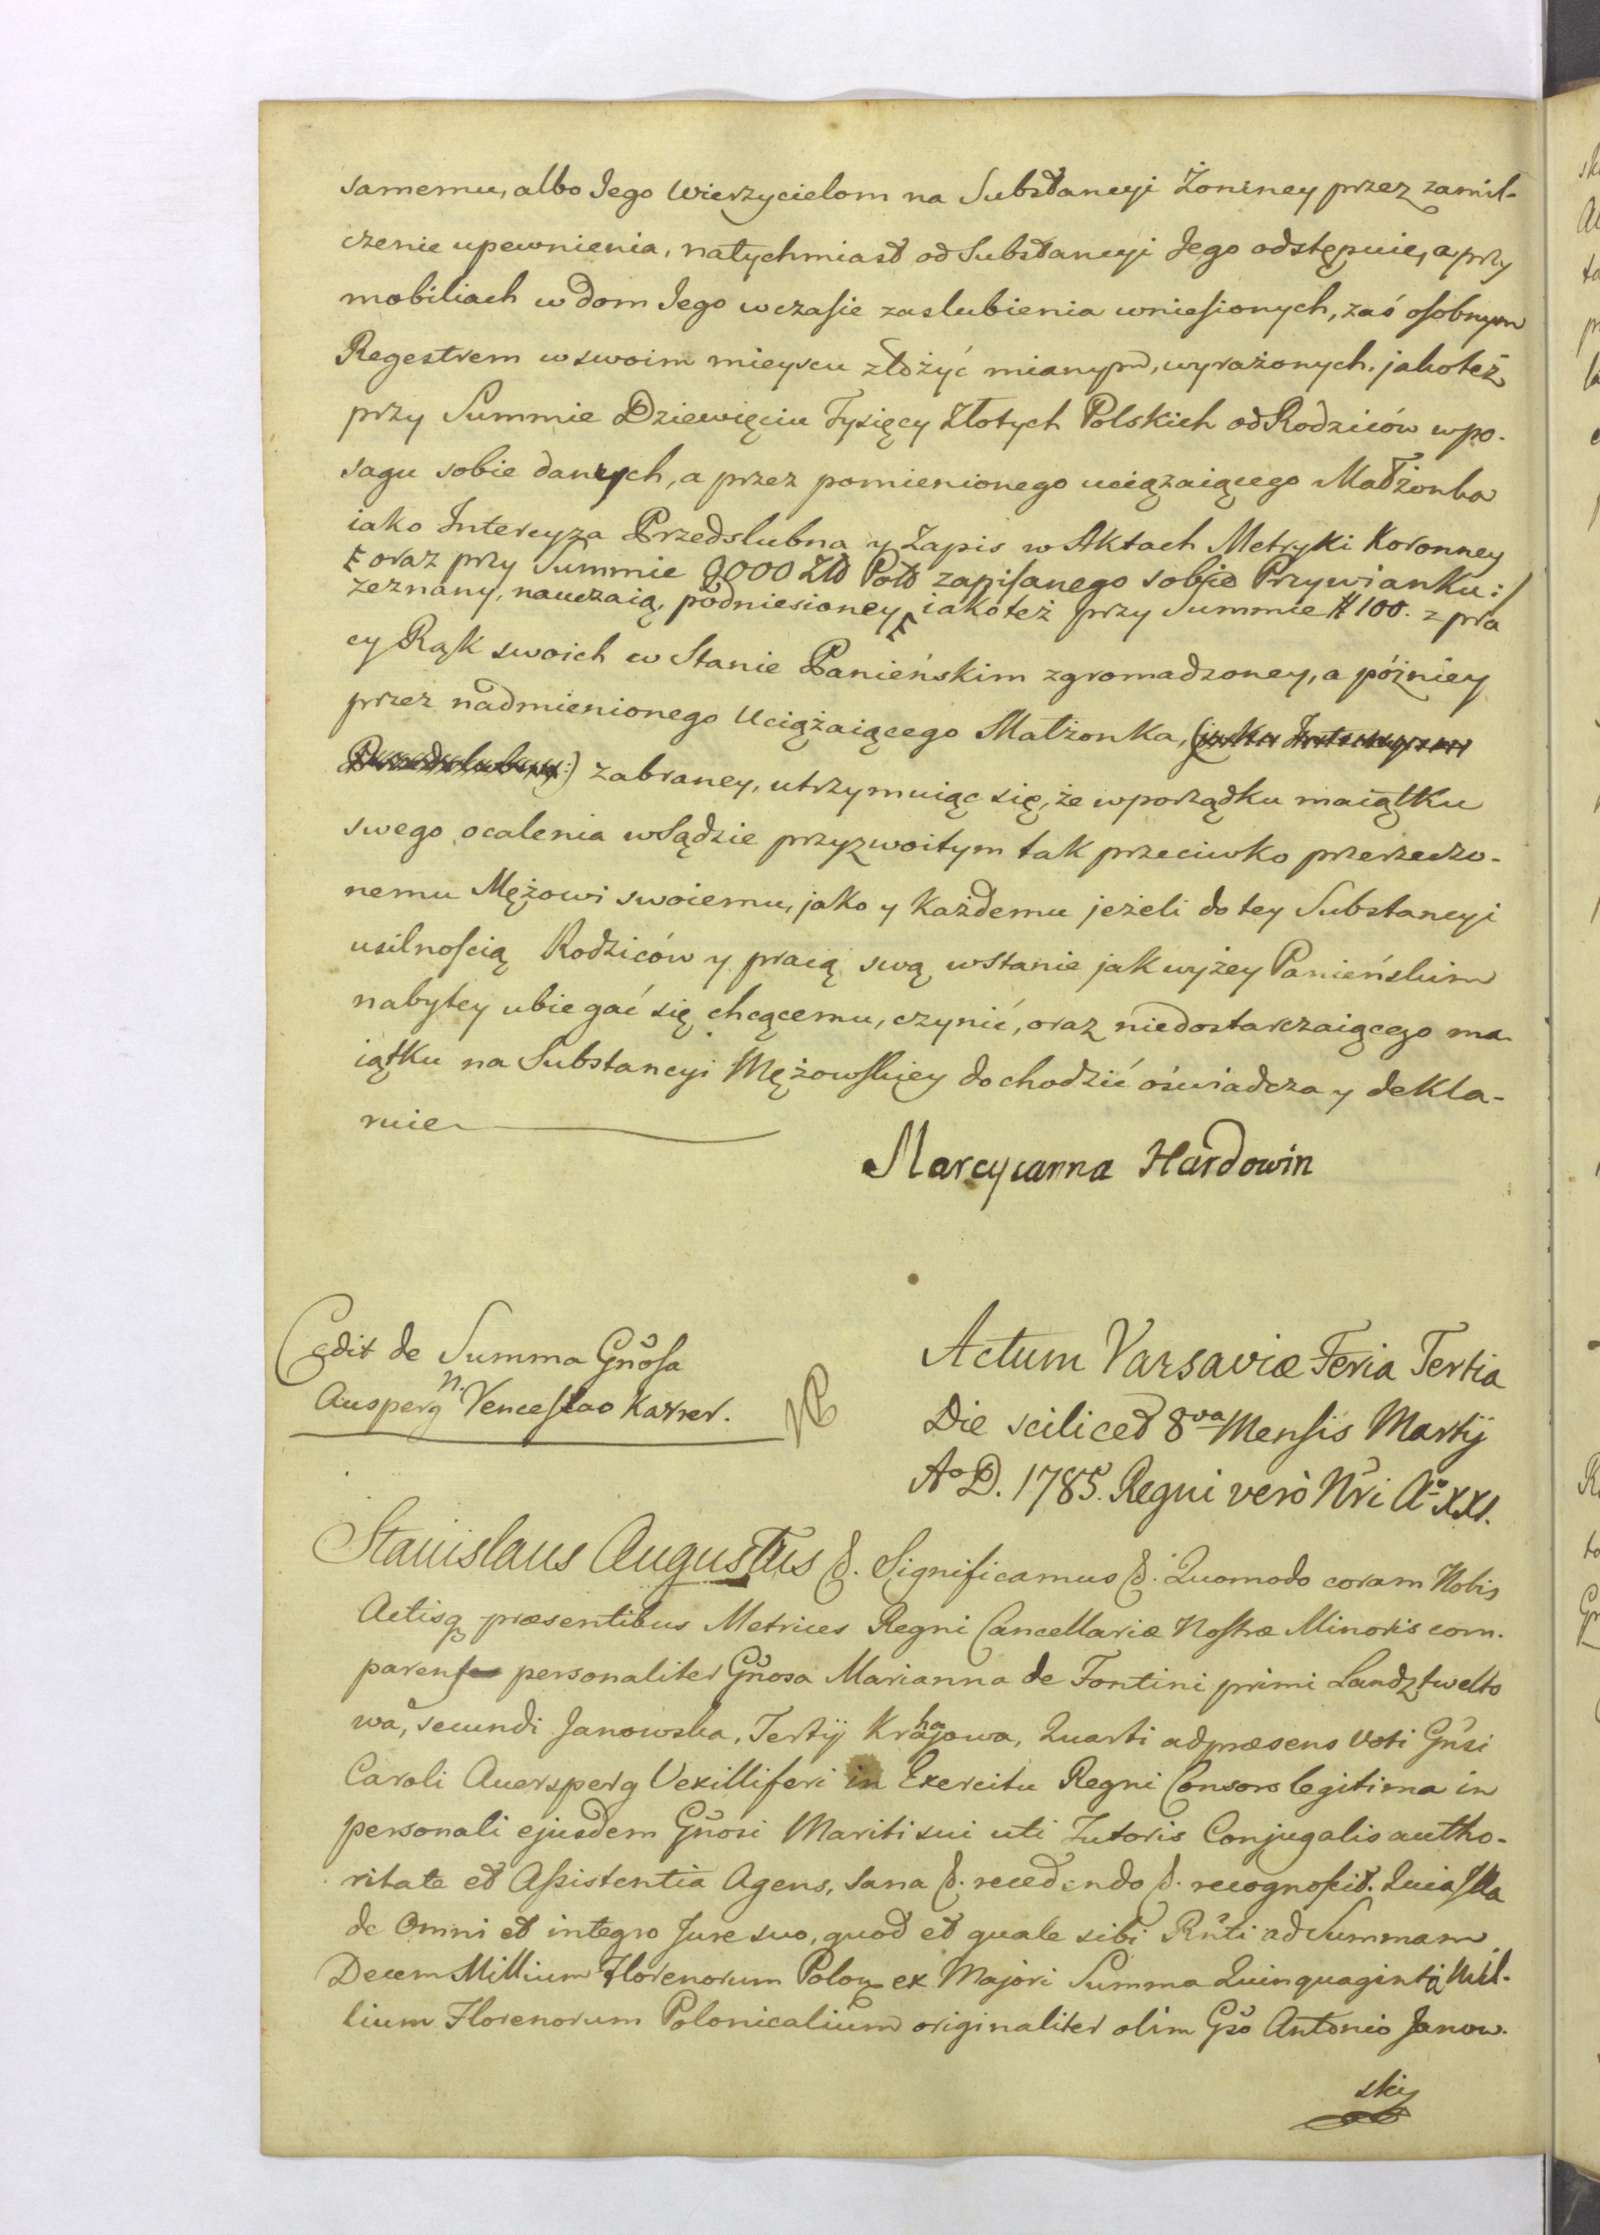 samemu, albo Jego Wierzycielom na Substancyi Żoniney przez zamil-
czenie upewnienia, natychmiast od Substancyi Jego odstępuie, a przy
mobiliach w dom Jego w czasie zaslubienia wniesionych, zaś osobnym
Regestrem w swoim mieyscu złożyć mianym, wyrażonych. jakoteż
przy Summie Dziewięciu Tysięcy Złotych Polskich od Rodziców w po-
sagu sobie danych, a przez pomienionego uciązaiącego Małżonka
iako Intercyza Przedslubna y Zapis w Aktach Metryki Koronney
oraz przy Summie 9000 Zło Pols zapisanego sobie Przywianku:/
zeznany, nauczaią, podniesioney, iakoteż przy Summie # 100. z pra
cy Rąk swoich w Stanie Panieńskim zgromadzoney, a pózniey
przez nadmienionego Uciążaiącego Małżonka, (jako Intercyza
Przedslubna:) zabraney, utrzymuiąc się, że w porządku maiątku
swego ocalenia w Sądzie przyzwoitym tak przeciwko przerzeczo-
nemu Mężowi swoiemu, jako y Każdemu jeżeli do tey Substancyi
usilnością Rodziców y pracą swą w stanie jak wyżey Panieńskim
nabytey ubiegać się chcącemu, czynić, oraz niedostarczaiącego ma-
iątku na Substancyi Mężowskiey dochodzić oświadcza y dekla-
ruie
Marcyanna Hardowin
Cedit de Summa Gñosa
Ausperg n. Venceslao Karrer.
NB
Actum Varsaviæ Feria Tertia
Die scilicet 8va Mensis Martij
Ao D. 1785. Regni verò Nri Ao XXI.
Stanislaus Augustus &. Significamus &. Quomodo coram Nobis
Actisq præsentibus Metrices Regni Cancellariæ Nostræ Minoris com-
parens personaliter Gñosa Marianna de Fontini primi Landztwelto
wa, secundi Janowska, Tertij Krahajowa, Quarti ad præsens Voti Gñsi
Caroli Auersperg Vexilliferi in Exercitu Regni Consors legitima in
personali ejusdem Gñosi Mariti sui uti Tutoris Conjugalis autho-
ritate et Assistentia Agens, sana &. recedendo &. recognoscit. Quia Ipsa
de Omni et integro Jure suo, quod et quale sibi Rñti ad Summam
Decem Millium Florenorum Polon ex Majori Summa Quinquaginta Mil-
lium Florenorum Polonicalium originaliter olim Gso Antonio Janow-
sky